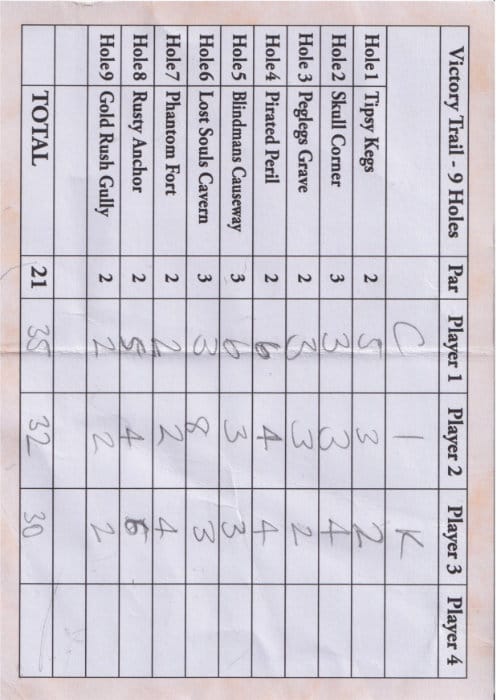 Victory Trail - 9 Holes Par Player 1 Player 2 Player 3 Player 4
C I K
Hole1 Tipsy Kegs 2 5 3 2
Hole2 Skull Corner 3 3 3 4
Hole 3 Peglegs Grave 2 3 3 2
Hole4 Pirated Peril 2 6 4 4
Hole5 Blindmans Causeway 3 6 3 3
Hole6 Lost Souls Cavern 3 3 8 3
Hole7 Phantom Fort 2 2 2 4
Hole8 Rusty Anchor 2 5 4 6
Hole9 Gold Rush Gully 2 2 2 2
TOTAL 21 35 32 30